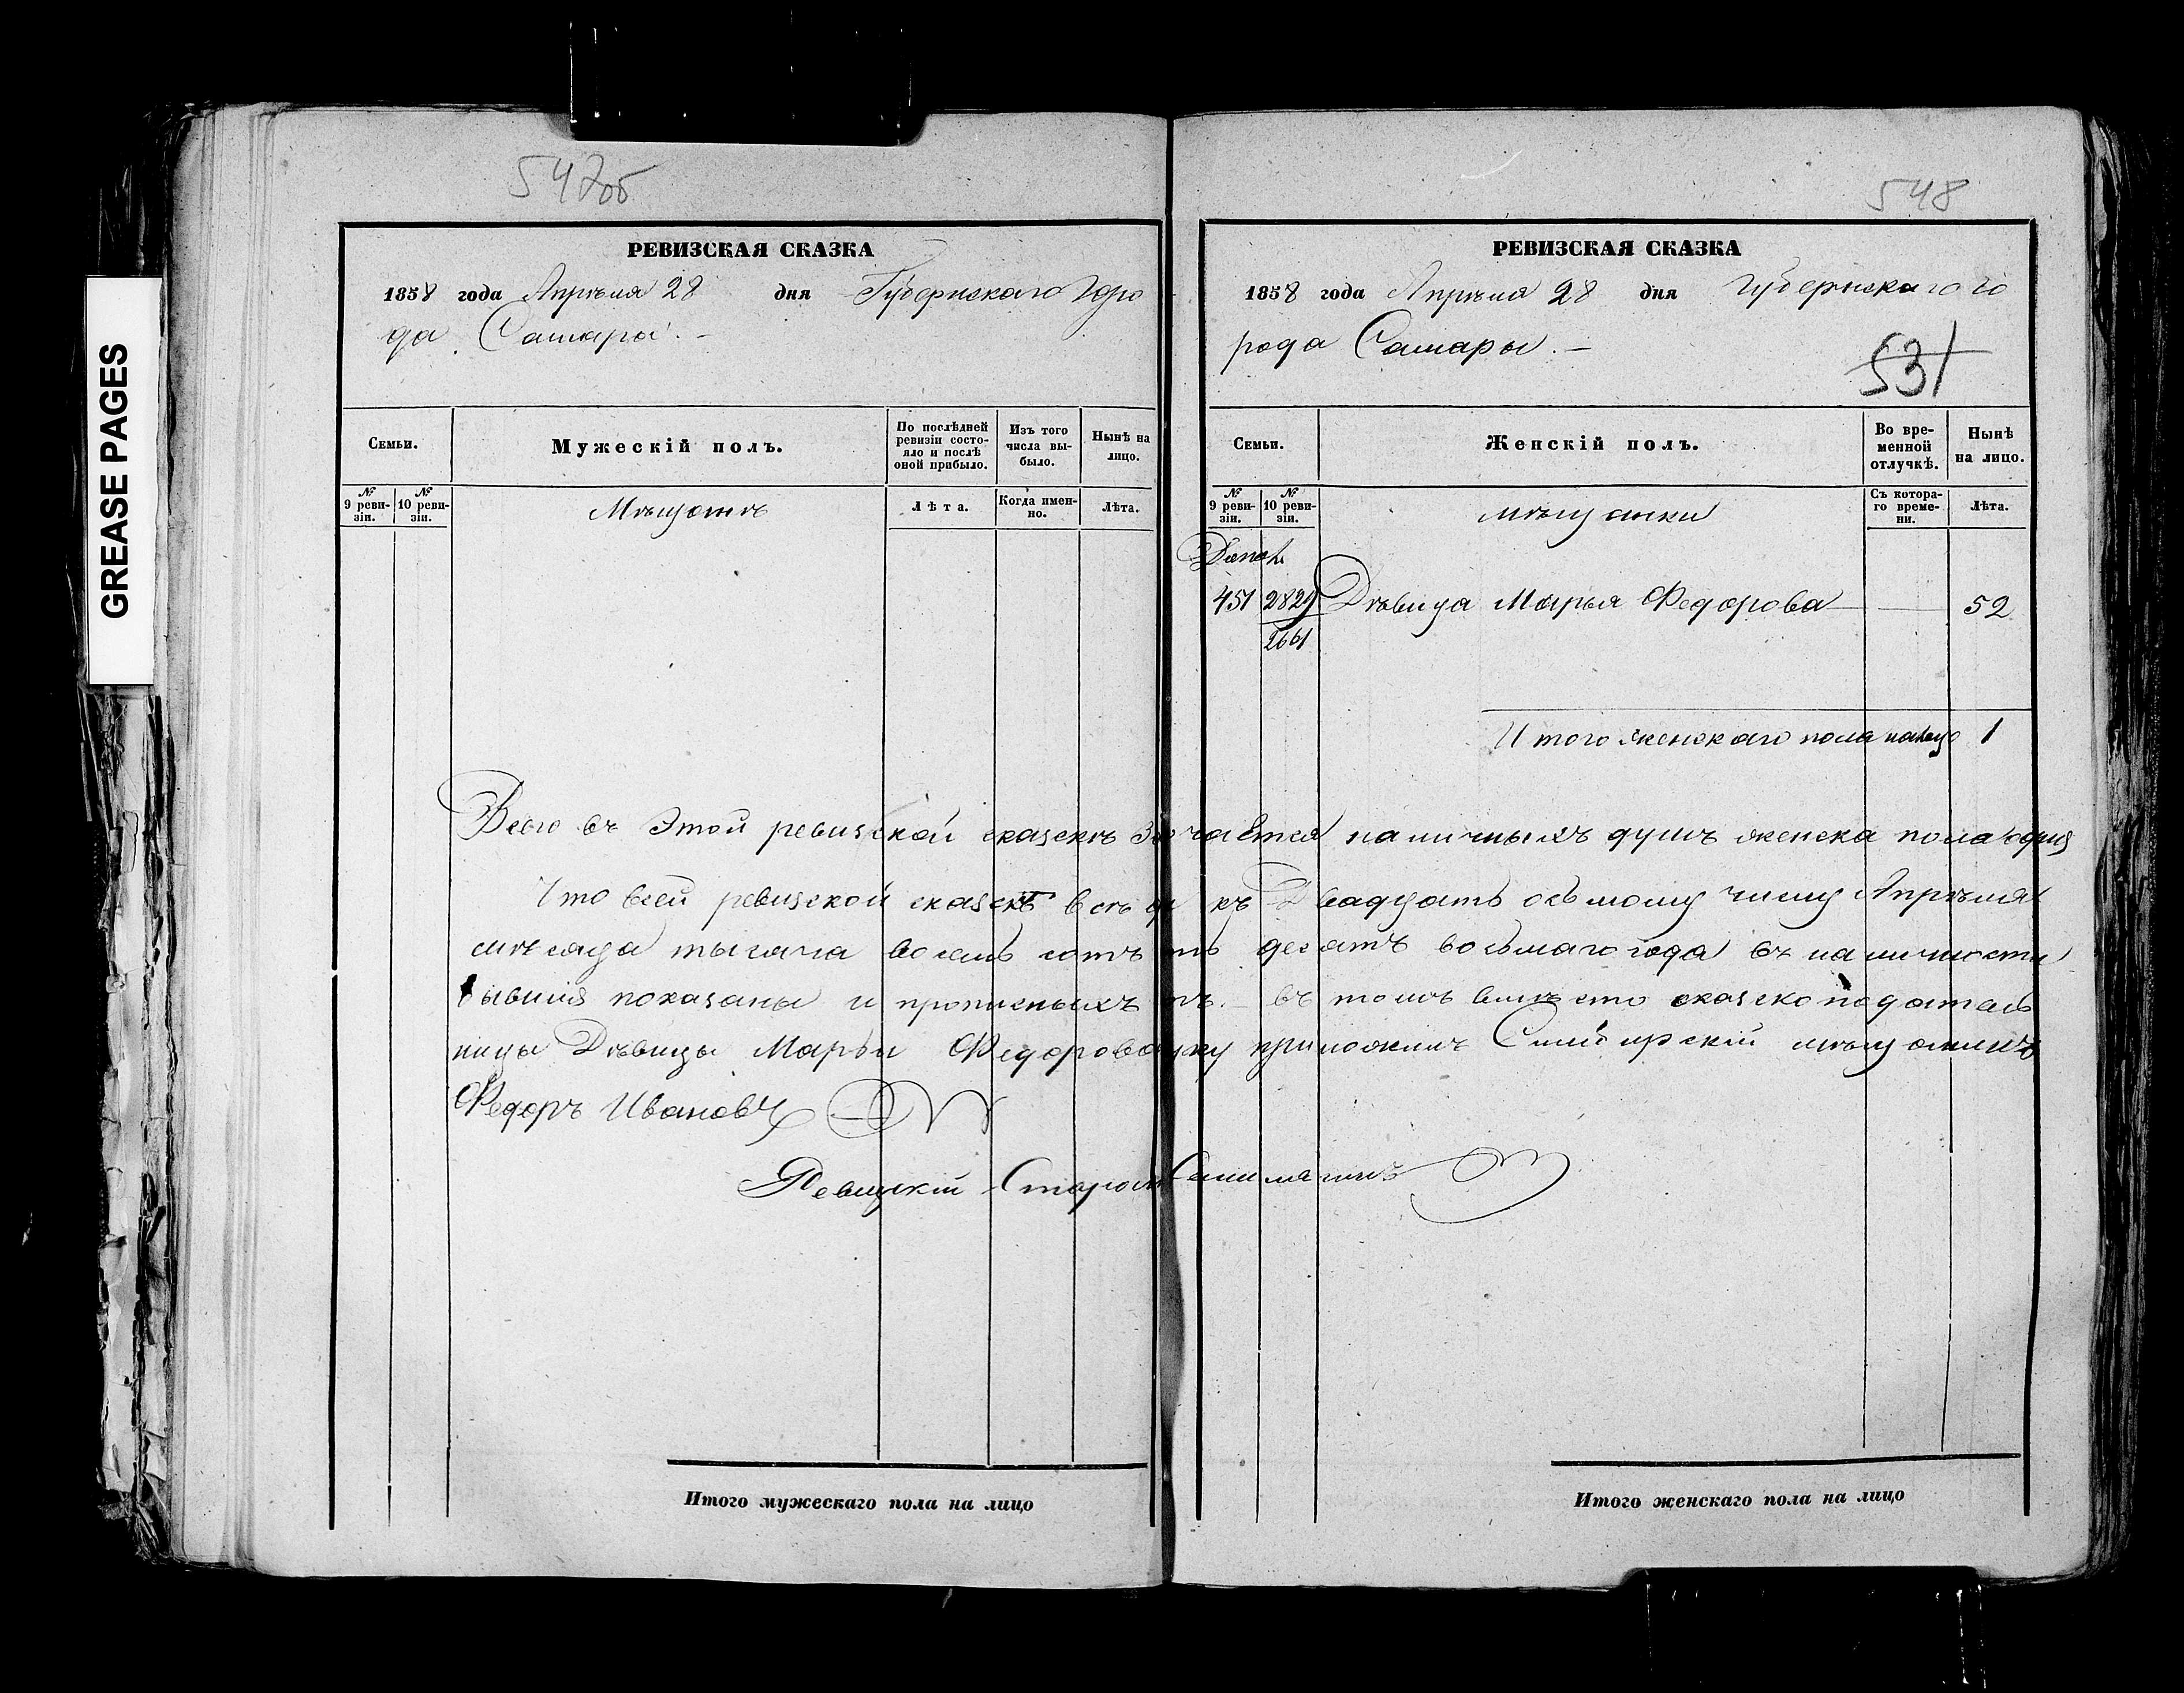 GREASE PAGES
547об
РЕВИЗСКАЯ СКАЗКА
1858 года Апрѣля 28 дня Губернскаго Горо
да Самары. –
Семьи.
Мужескій полъ.
По послѣдней ревизіи состояло и послѣ оной прибыло.
Изъ того числа выбыло.
Нынѣ на лицо.
№ 9 ревизіи.
№ 10 ревизіи.
Мѣщанъ
Лѣта.
Когда именно.
Лѣта.
548
РЕВИЗСКАЯ СКАЗКА
1858 года Апрѣля 28 дня Губернскаго го
рода Самары. –
531
Семьи.
Женскій полъ.
Во временной отлучкѣ.
Нынѣ на лицо.
№ 9 ревизіи.
№ 10 ревизіи.
мѣщанки
Съ котораго времени.
Лѣта.
451 2829 Дѣвица Марья Федорова — — 52
2661
Итого женскаго пола налицо 1
Всего въ этой ревизской сказкѣ наличныхъ душъ женска пола
Что всей ревизской сказкѣ всѣ къ Двадцать осьмому числу Апрѣля
мѣсяца тысяча восемь сотъ десятъ восьмаго года въ наличности
бывшія показаны и прописныхъ въ томъ вмѣсто сказкоподатель
ницы Дѣвицы Марьи Федоровой руку приложилъ Симбирскій мѣщанинъ
Федоръ Ивановъ
Ревизскій Староста
Итого мужескаго пола на лицо
Итого женскаго пола на лицо